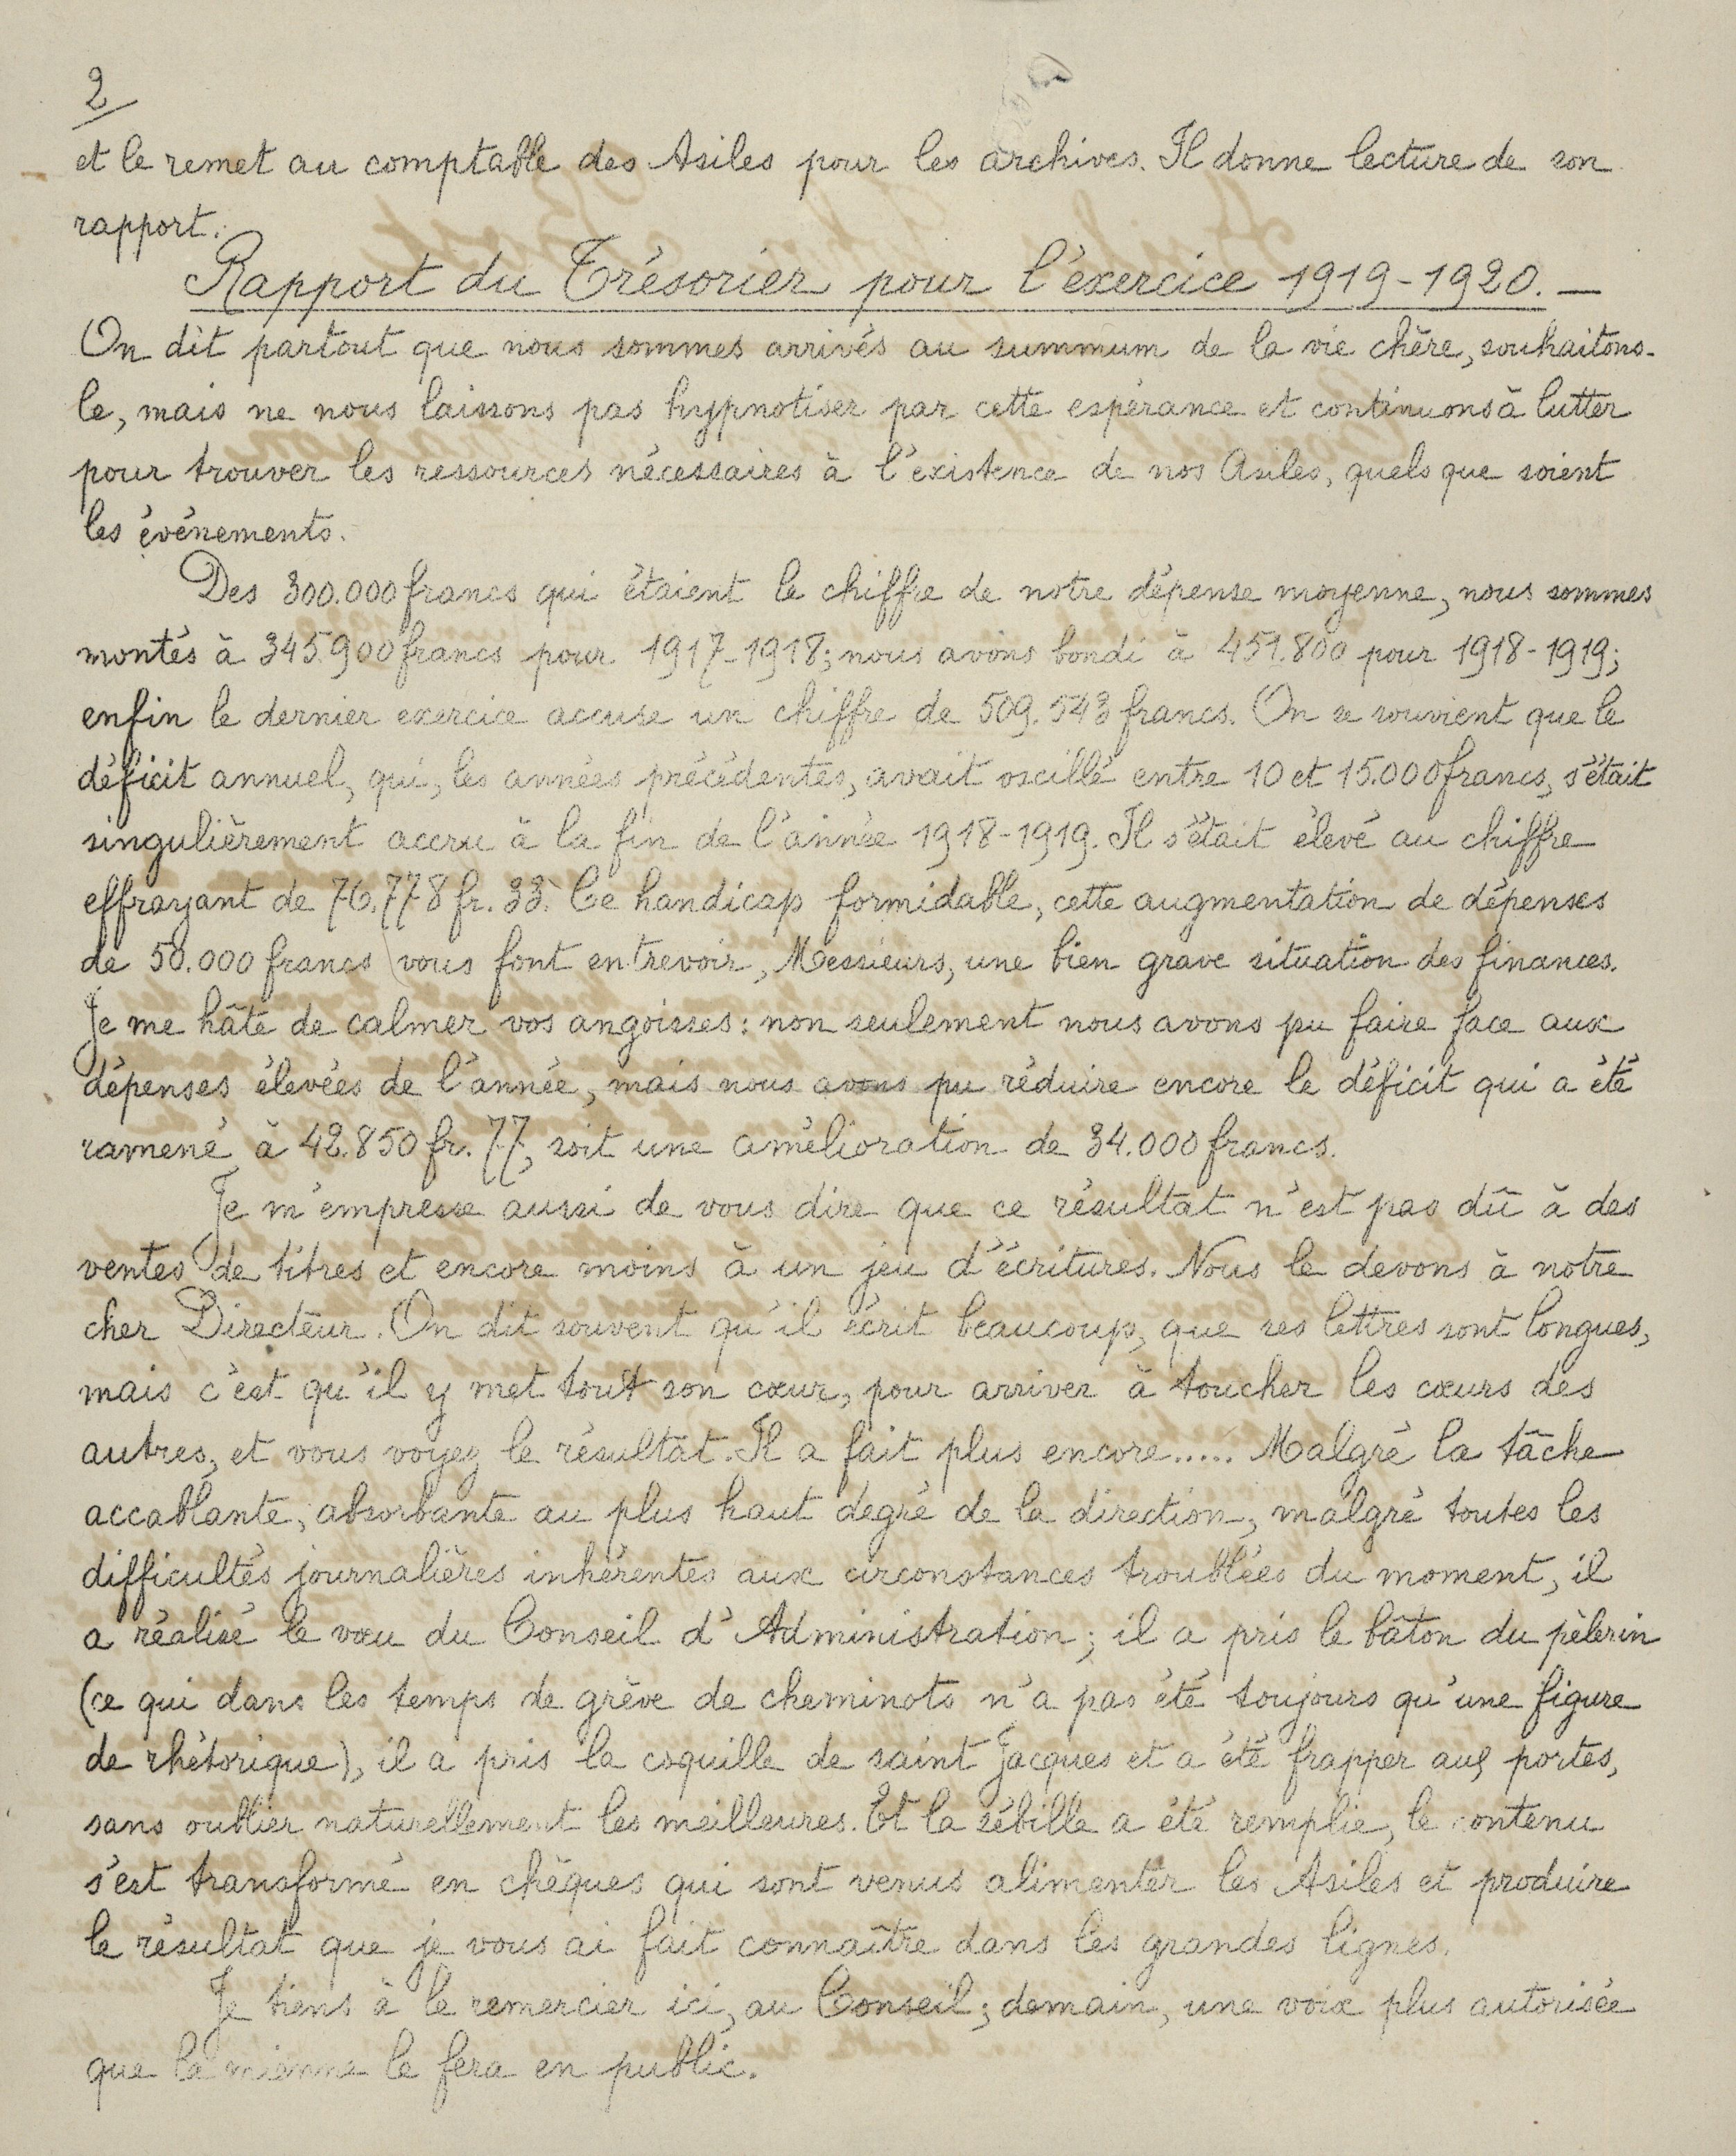 2
et le remet au comptable des Asiles pour les archives. Il donne lecture de son
rapport.
Rapport du Trésorier pour l'exercice 1919-1920. —
On dit partout que nous sommes arrivés au summum de la vie chère, souhaitons-
le, mais ne nous laissons pas hypnotiser par cette espérance et continuons à lutter
pour trouver les ressources nécessaires à l'existence de nos Asiles, quels que soient
les événements.
Des 300.000 francs qui étaient le chiffre de notre dépense moyenne, nous sommes
montés à 345.900 francs pour 1917-1918; nous avons bondi à 451.800 pour 1918-1919;
enfin le dernier exercice accuse un chiffre de 509.543 francs. On se souvient que le
déficit annuel, qui, les années précédentes, avait oscillé entre 10 et 15.000 francs, s'était
singulièrement accru à la fin de l'année 1918-1919. Il s'était élevé au chiffre
effrayant de 76.778 fr. 33. Ce handicap formidable, cette augmentation de dépenses
de 50.000 francs vous font entrevoir, Messieurs, une bien grave situation des finances.
Je me hâte de calmer vos angoisses: non seulement nous avons pu faire face aux
dépenses élevées de l'année, mais nous avons pu réduire encore le déficit qui a été
ramené à 42.850 fr. 77, soit une amélioration de 34.000 francs.
Je m'empresse aussi de vous dire que ce résultat n'est pas dû à des
ventes de titres et encore moins à un jeu d'écritures. Nous le devons à notre
cher Directeur. On dit souvent qu'il écrit beaucoup, que ses lettres sont longues,
mais c'est qu'il y met tout son cœur, pour arriver à toucher les cœurs des
autres, et vous voyez le résultat. Il a fait plus encore..... Malgré la tâche
accablante, absorbante au plus haut degré de la direction, malgré toutes les
difficultés journalières inhérentes aux circonstances troublées du moment, il
a réalisé le vœu du Conseil d'Administration; il a pris le bâton du pèlerin
(ce qui dans les temps de grève de cheminots n'a pas été toujours qu'une figure
de rhétorique), il a pris la coquille de saint Jacques et a été frapper aux portes,
sans oublier naturellement les meilleures. Et la sébille a été remplie, le contenu
s'est transformé en chèques qui sont venus alimenter les Asiles et produire
le résultat que je vous ai fait connaître dans les grandes lignes.
Je tiens à le remercier ici, au Conseil; demain, une voix plus autorisée
que la mienne le fera en public.